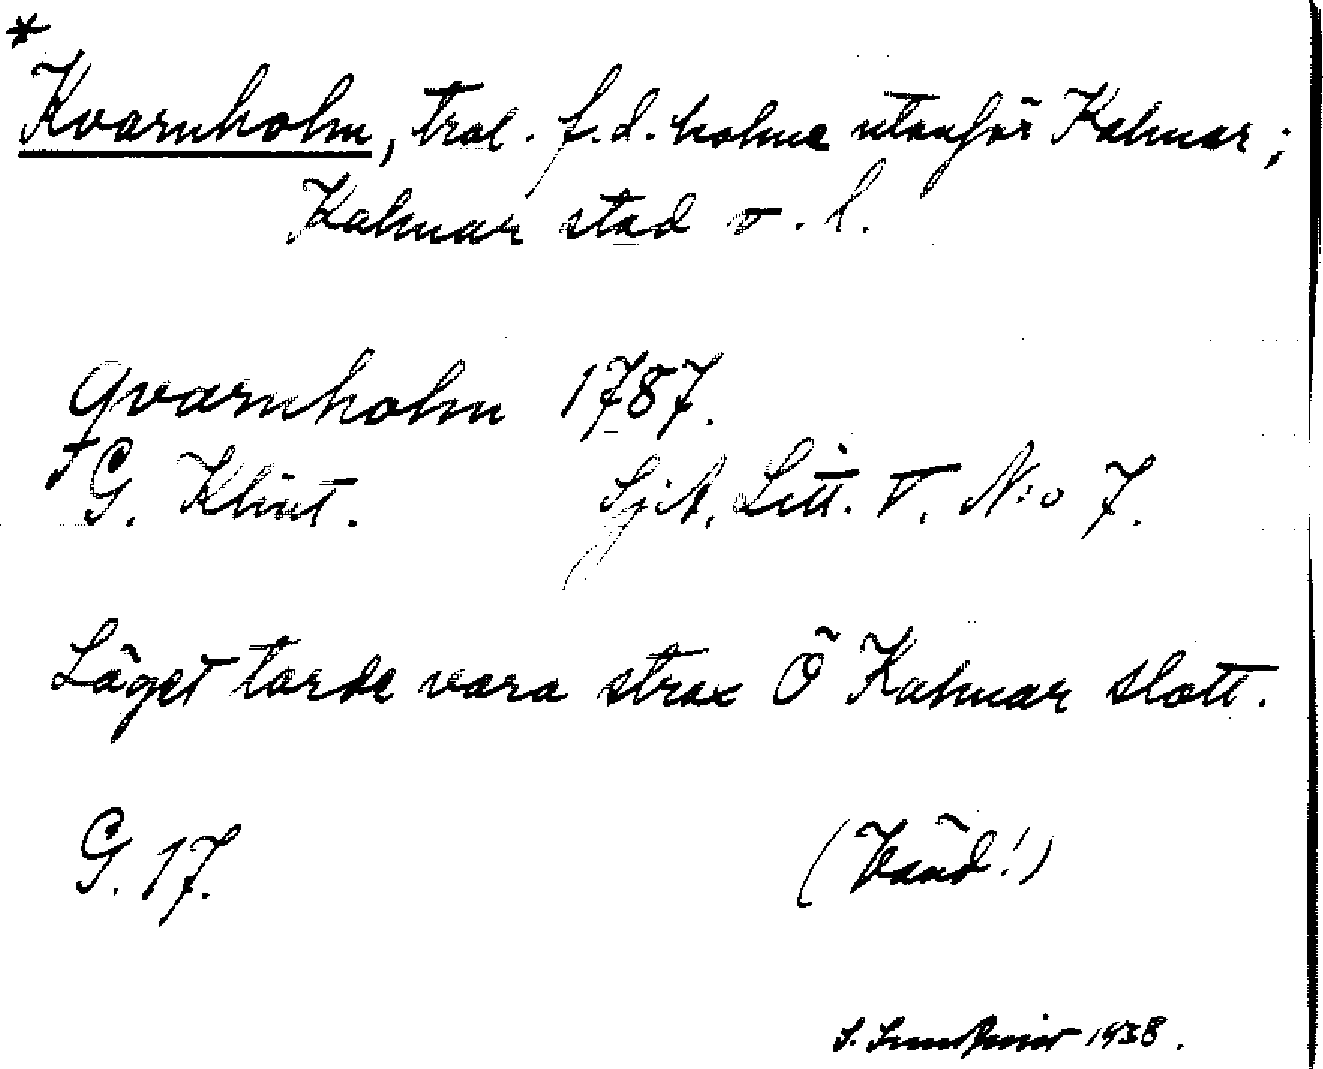 *
Kvarnholm, trol. f.d. holme utanför Kalmar;
Kalmar stad o. l.
Qvarnholm 1787.
G. Klint. SjA. Litt. V. N:o 7.
Läget torde vara strax Ö Kalmar slott.
G. 17. (Vänd!)
S. 1938.